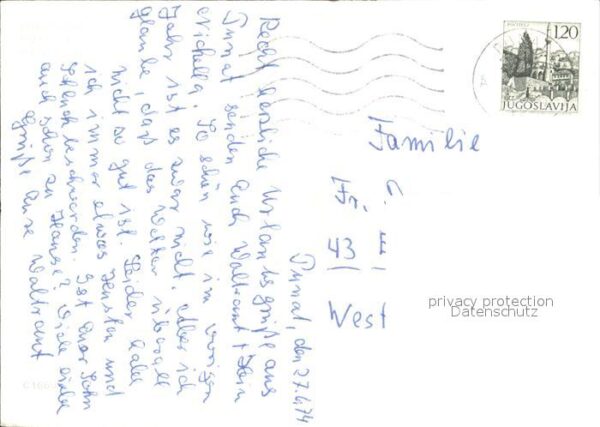 Punat, den 27.6.74
Recht herzliche Urlaubsgrüße aus
Punat senden Euch Waltraut + Hein
Michelle. So schön wie im vorigen
Jahr ist es zwar nicht. Aber ich
glaube, daß das Wetter überall
nicht so gut ist. Leider habe
ich immer etwas Husten und
Schluckbeschwerden. Ist Euer Sohn
auch schon zu Hause? Viele liebe
Grüße Eure Waltraut
1,20
JUGOSLAVIJA
Familie
Fr.
43 E
West
privacy protection
Datenschutz